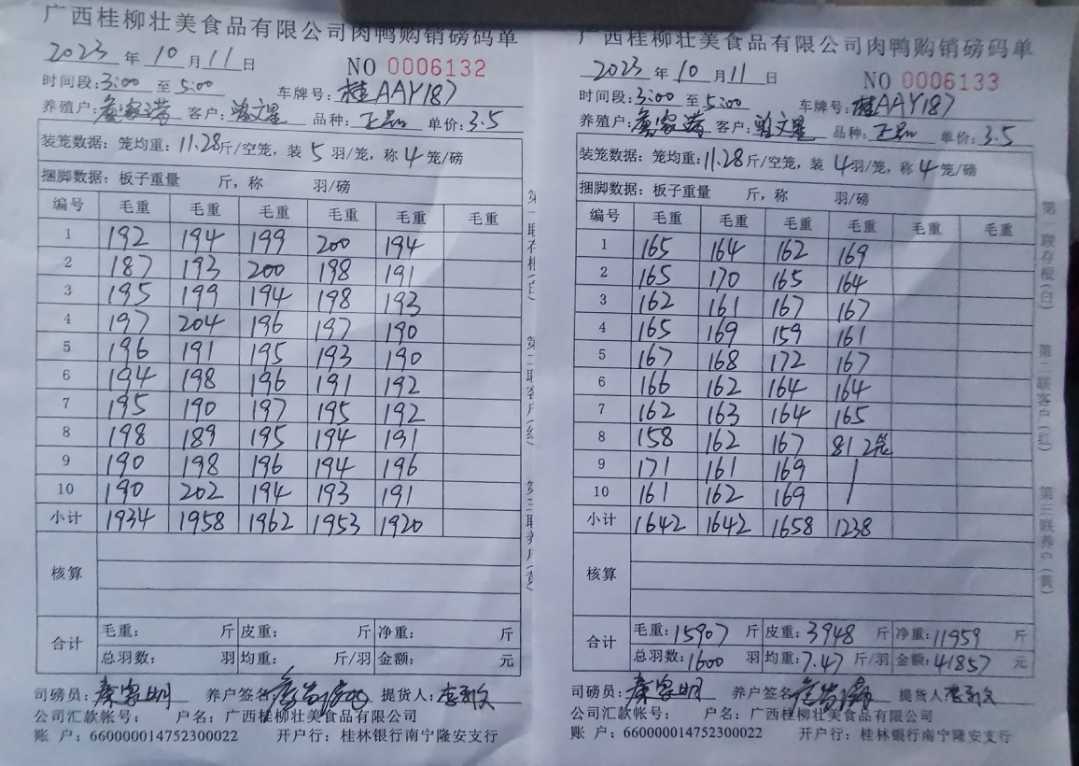 广西桂柳壮美食品有限公司肉鸭购销磅码单
2023 年 10 月 11 日 NO 0006132
时间段: 3:00 至 5:00 车牌号: 桂AAY187
养殖户: 客户: 曾文星 品种: 正品 单价: 3.5
装笼数据: 笼均重: 11.28 斤/空笼, 装 5 羽/笼, 称 4 笼/磅
捆脚数据: 板子重量 斤, 称 羽/磅
编号 毛重 毛重 毛重 毛重 毛重 毛重
1 192 194 199 200 194
2 187 193 200 198 191
3 195 199 194 198 193
4 197 204 196 197 190
5 196 191 195 193 190
6 194 198 196 191 192
7 195 190 197 195 192
8 198 189 195 194 191
9 190 198 196 194 196
10 190 202 194 193 191
小计 1934 1958 1962 1953 1920
核算
合计 毛重: 斤 皮重: 斤 净重: 斤
总羽数: 羽 均重: 斤/羽 金额: 元
司磅员: 养户签名 提货人:
公司汇款帐号: 户名: 广西桂柳壮美食品有限公司
账 户: 660000014752300022 开户行: 桂林银行南宁隆安支行
第一联存根(白) 第二联客户(红) 第三联养户(黄)
广西桂柳壮美食品有限公司肉鸭购销磅码单
2023 年 10 月 11 日 NO 0006133
时间段: 3:00 至 5:00 车牌号: 桂AAY187
养殖户: 客户: 曾文星 品种: 正品 单价: 3.5
装笼数据: 笼均重: 11.28 斤/空笼, 装 4 羽/笼, 称 4 笼/磅
捆脚数据: 板子重量 斤, 称 羽/磅
编号 毛重 毛重 毛重 毛重 毛重 毛重
1 165 164 162 169
2 165 170 165 164
3 162 161 167 167
4 165 169 159 161
5 167 168 172 167
6 166 162 164 164
7 162 163 164 165
8 158 162 167 81 2笼
9 171 161 169 /
10 161 162 169 /
小计 1642 1642 1658 1238
核算
合计 毛重: 15907 斤 皮重: 3948 斤 净重: 11959 斤
总羽数: 1600 羽 均重: 7.47 斤/羽 金额: 41857 元
司磅员: 养户签名 提货人
公司汇款帐号: 户名: 广西桂柳壮美食品有限公司
账 户: 660000014752300022 开户行: 桂林银行南宁隆安支行
第一联存根(白) 第二联客户(红) 第三联养户(黄)